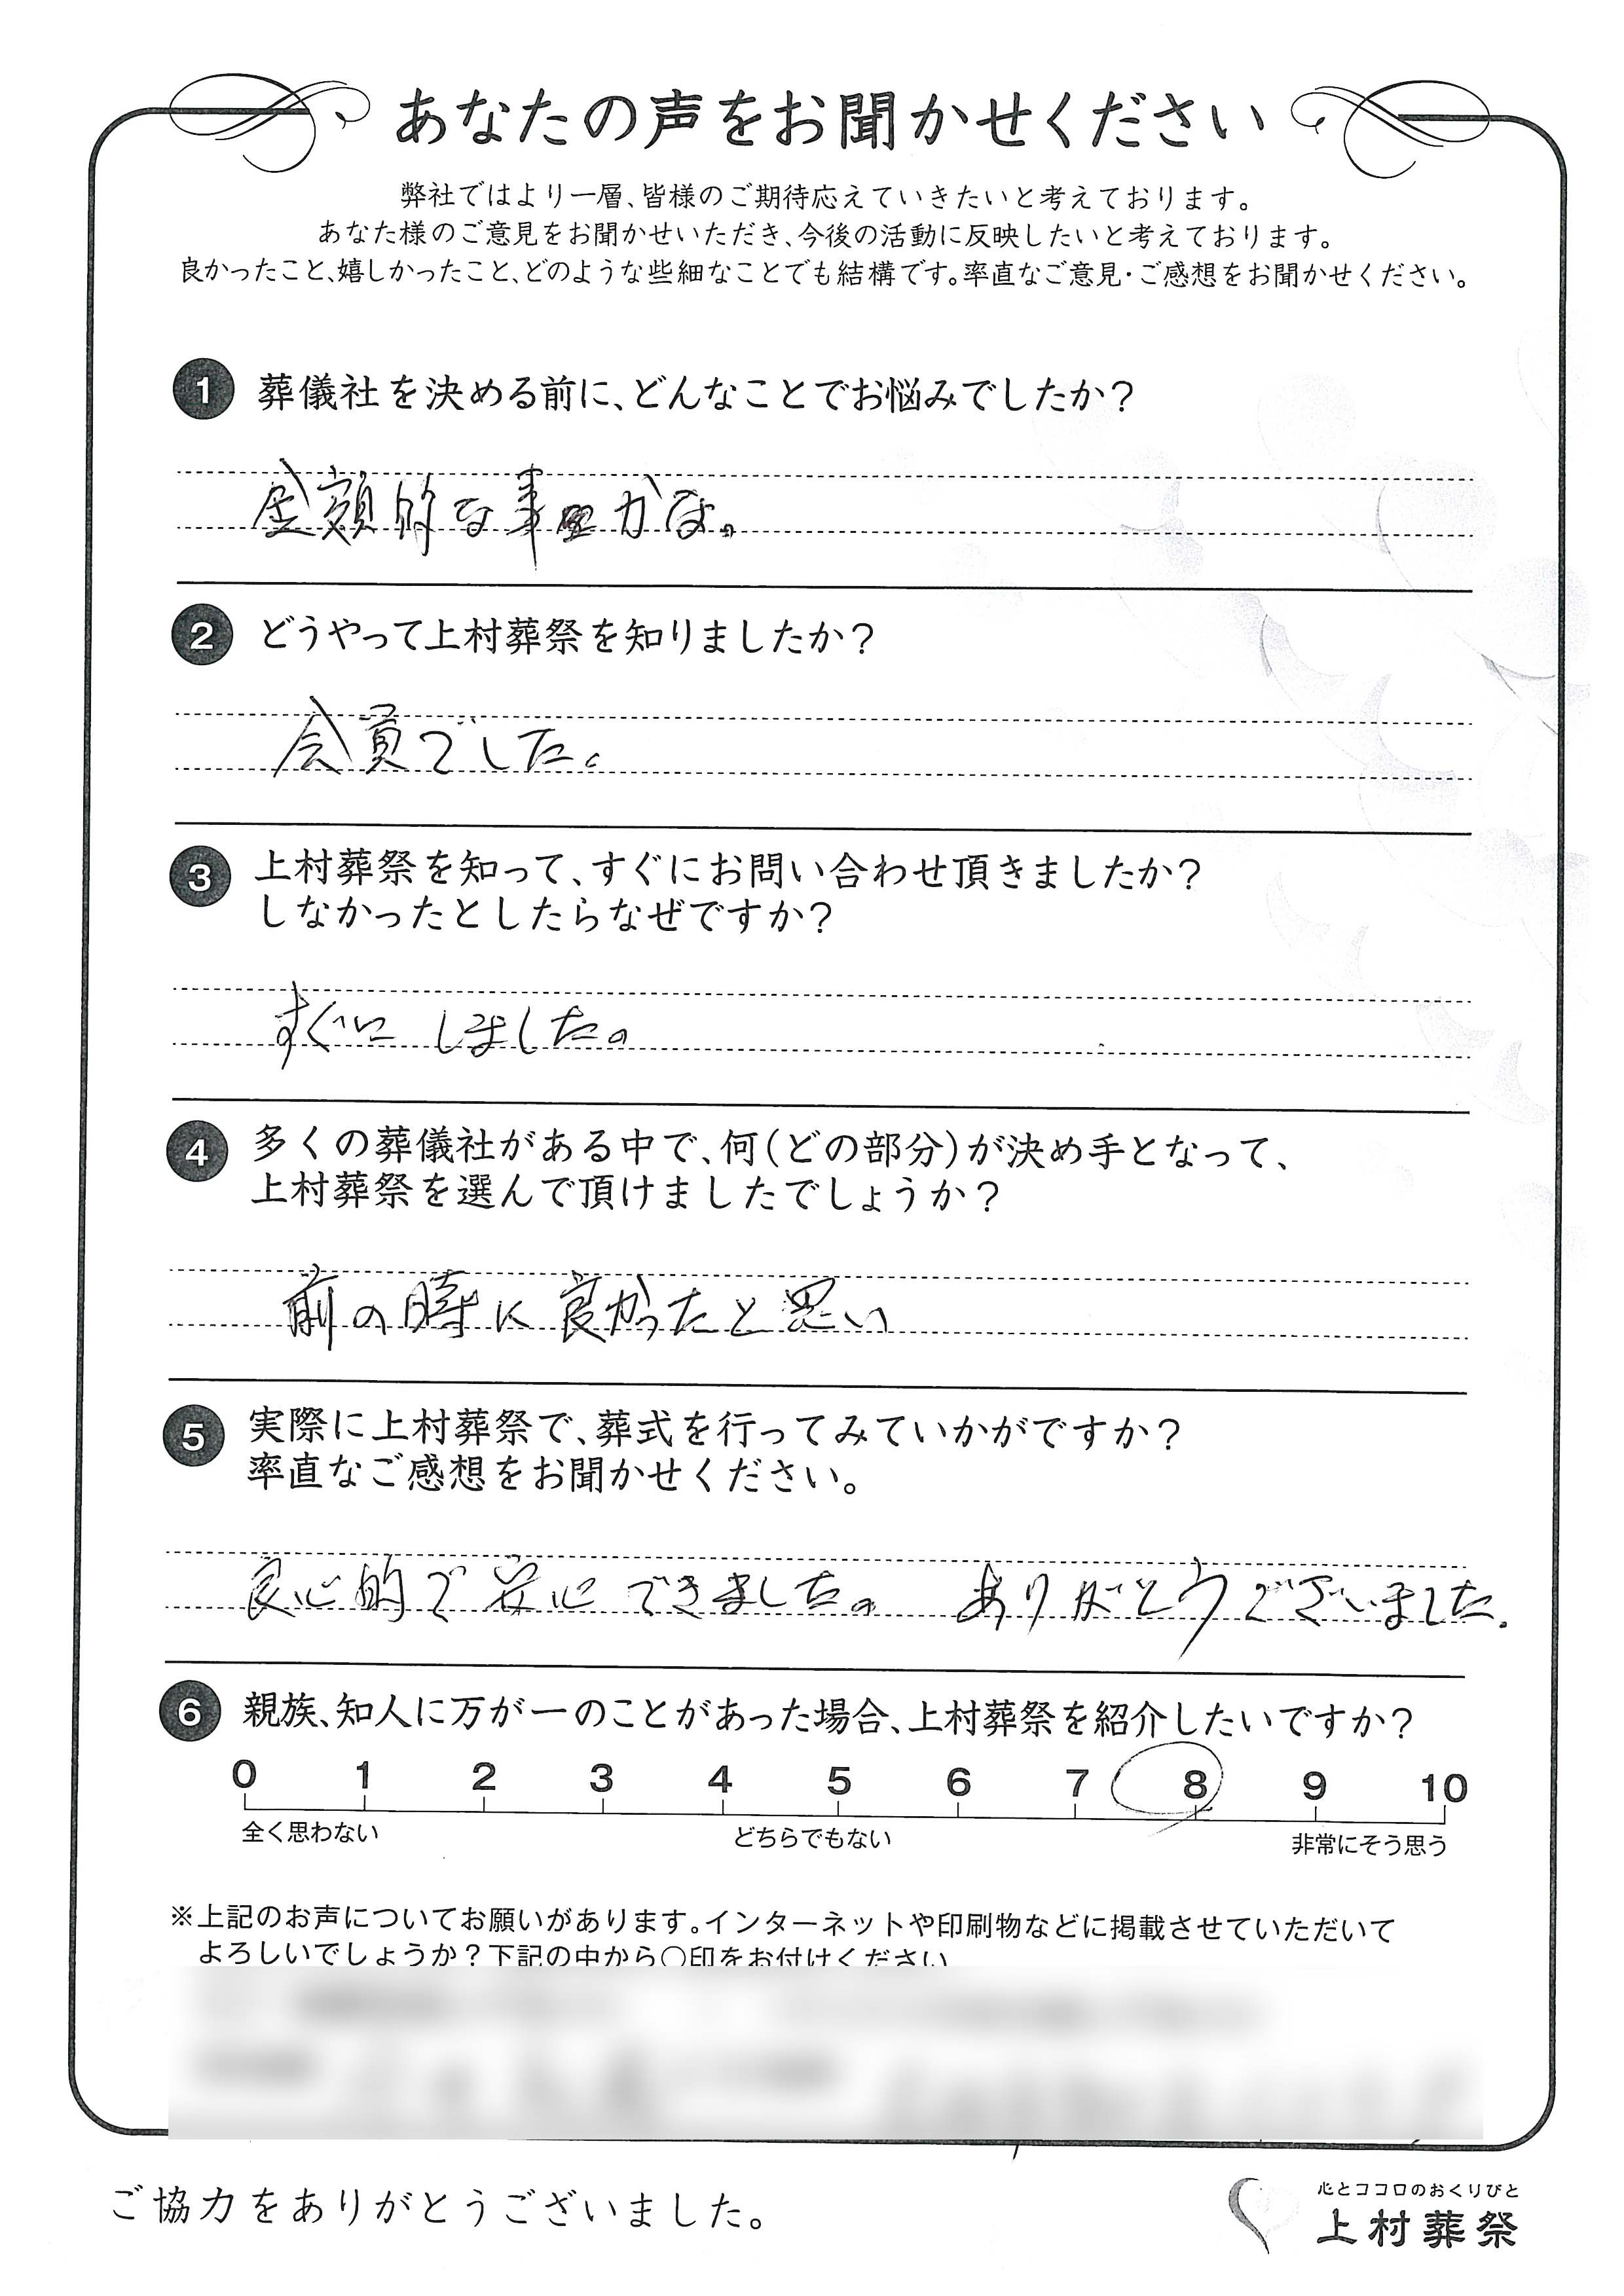 あなたの声をお聞かせください
弊社ではより一層、皆様のご期待応えていきたいと考えております。
あなた様のご意見をお聞かせいただき、今後の活動に反映したいと考えております。
良かったこと、嬉しかったこと、どのような些細なことでも結構です。率直なご意見・ご感想をお聞かせください。
1 葬儀社を決める前に、どんなことでお悩みでしたか?
金額的な事かな。
2 どうやって上村葬祭を知りましたか?
会員でした。
3 上村葬祭を知って、すぐにお問い合わせ頂きましたか?
しなかったとしたらなぜですか?
すぐに しました。
4 多くの葬儀社がある中で、何(どの部分)が決め手となって、
上村葬祭を選んで頂けましたでしょうか?
前の時に良かったと思い
5 実際に上村葬祭で、葬式を行ってみていかがですか?
率直なご感想をお聞かせください。
良心的で安心できました。 ありがとうございました.
6 親族、知人に万が一のことがあった場合、上村葬祭を紹介したいですか?
0 1 2 3 4 5 6 7 8 9 10
全く思わない どちらでもない 非常にそう思う
※上記のお声についてお願いがあります。インターネットや印刷物などに掲載させていただいて
よろしいでしょうか?下記の中から○印をお付けください
ご協力をありがとうございました。
心とココロのおくりびと
上村葬祭